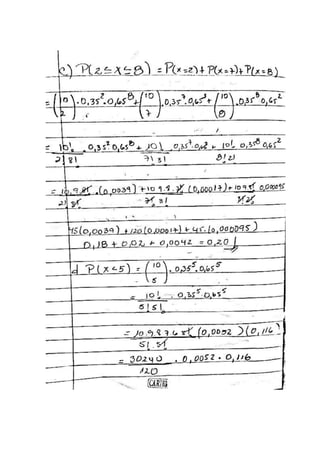 c) P(2≤x≤8) = P(x=2)+P(x=7)+P(x=8)
= (10 2).0,35².0,65⁸+(10 7).0,35⁷.0,65³+(10 8).0,35⁸0,65²
= 10! .0,35²0,65⁸ + 10! .0,35⁷.0,65³ + 10! 0,35⁸ 0,65²
2!8! 7!3! 8!2!
= 10.9.8! .(0,0039) + 10.9.8.7! (0,00017)+10.9.8! 0,000095
2!8! 7!.3! 8!2!
45(0,0039)+120(0,00017)+45.(0,000095)
0,18 + 0,02 + 0,0042 = 0,20
d P(x<5) = (10 5).0,35⁵.0,65⁵
= 10! . 0,35⁵.0,65⁵
5!5!
= 10.9.8.7.6.5! (0,0052)(0,116)
5!.5!
= 30240 . 0,0052 . 0,116
120